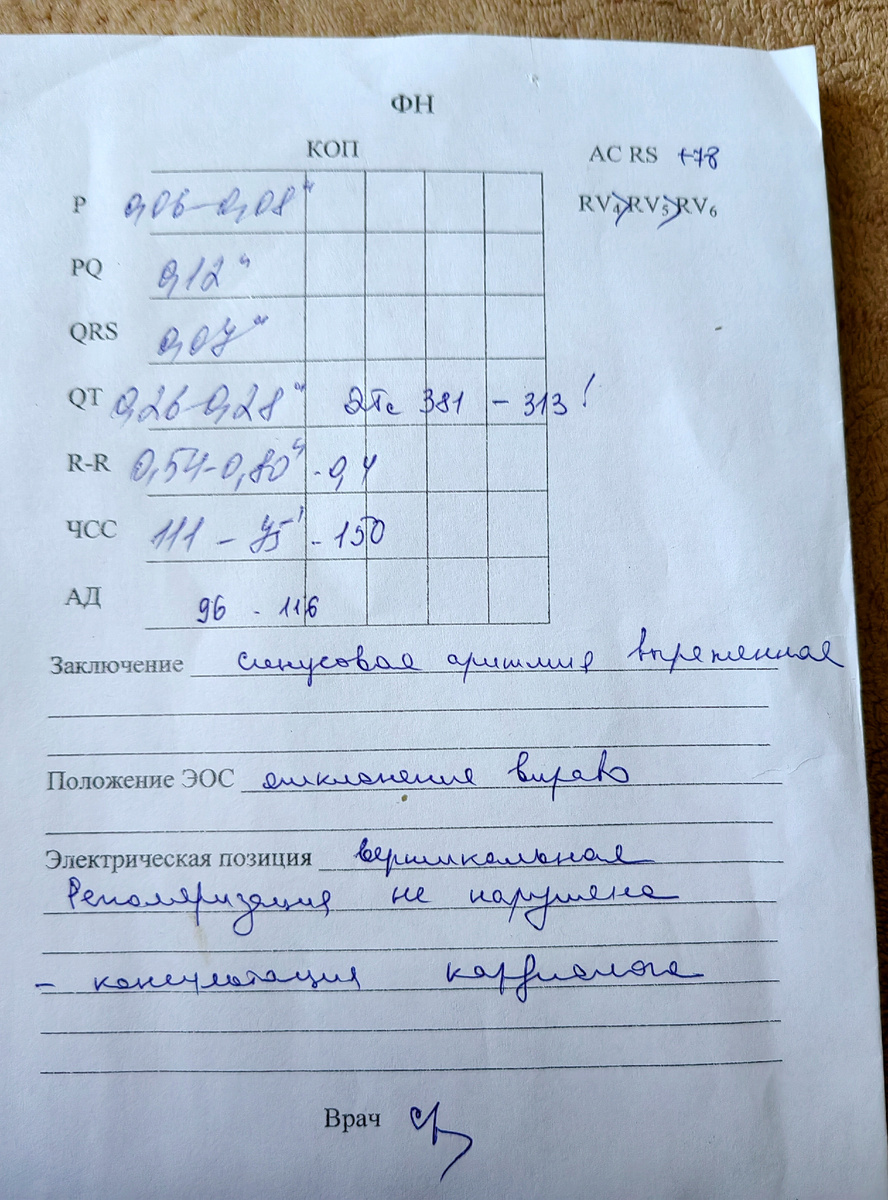 ФН
КОП
AC RS +78
P 0,06-0,08"
RV4>RV5>RV6
PQ 0,12"
QRS 0,07"
QT 0,26-0,28" QTc 381 - 313!
R-R 0,54-0,80" - 0,4
ЧСС 111 - 75' - 150
АД 96 - 116
Заключение синусовая аритмия выраженная
Положение ЭОС отклонение вправо
Электрическая позиция вертикальная
Реполяризация не нарушена
- консультация кардиолога
Врач